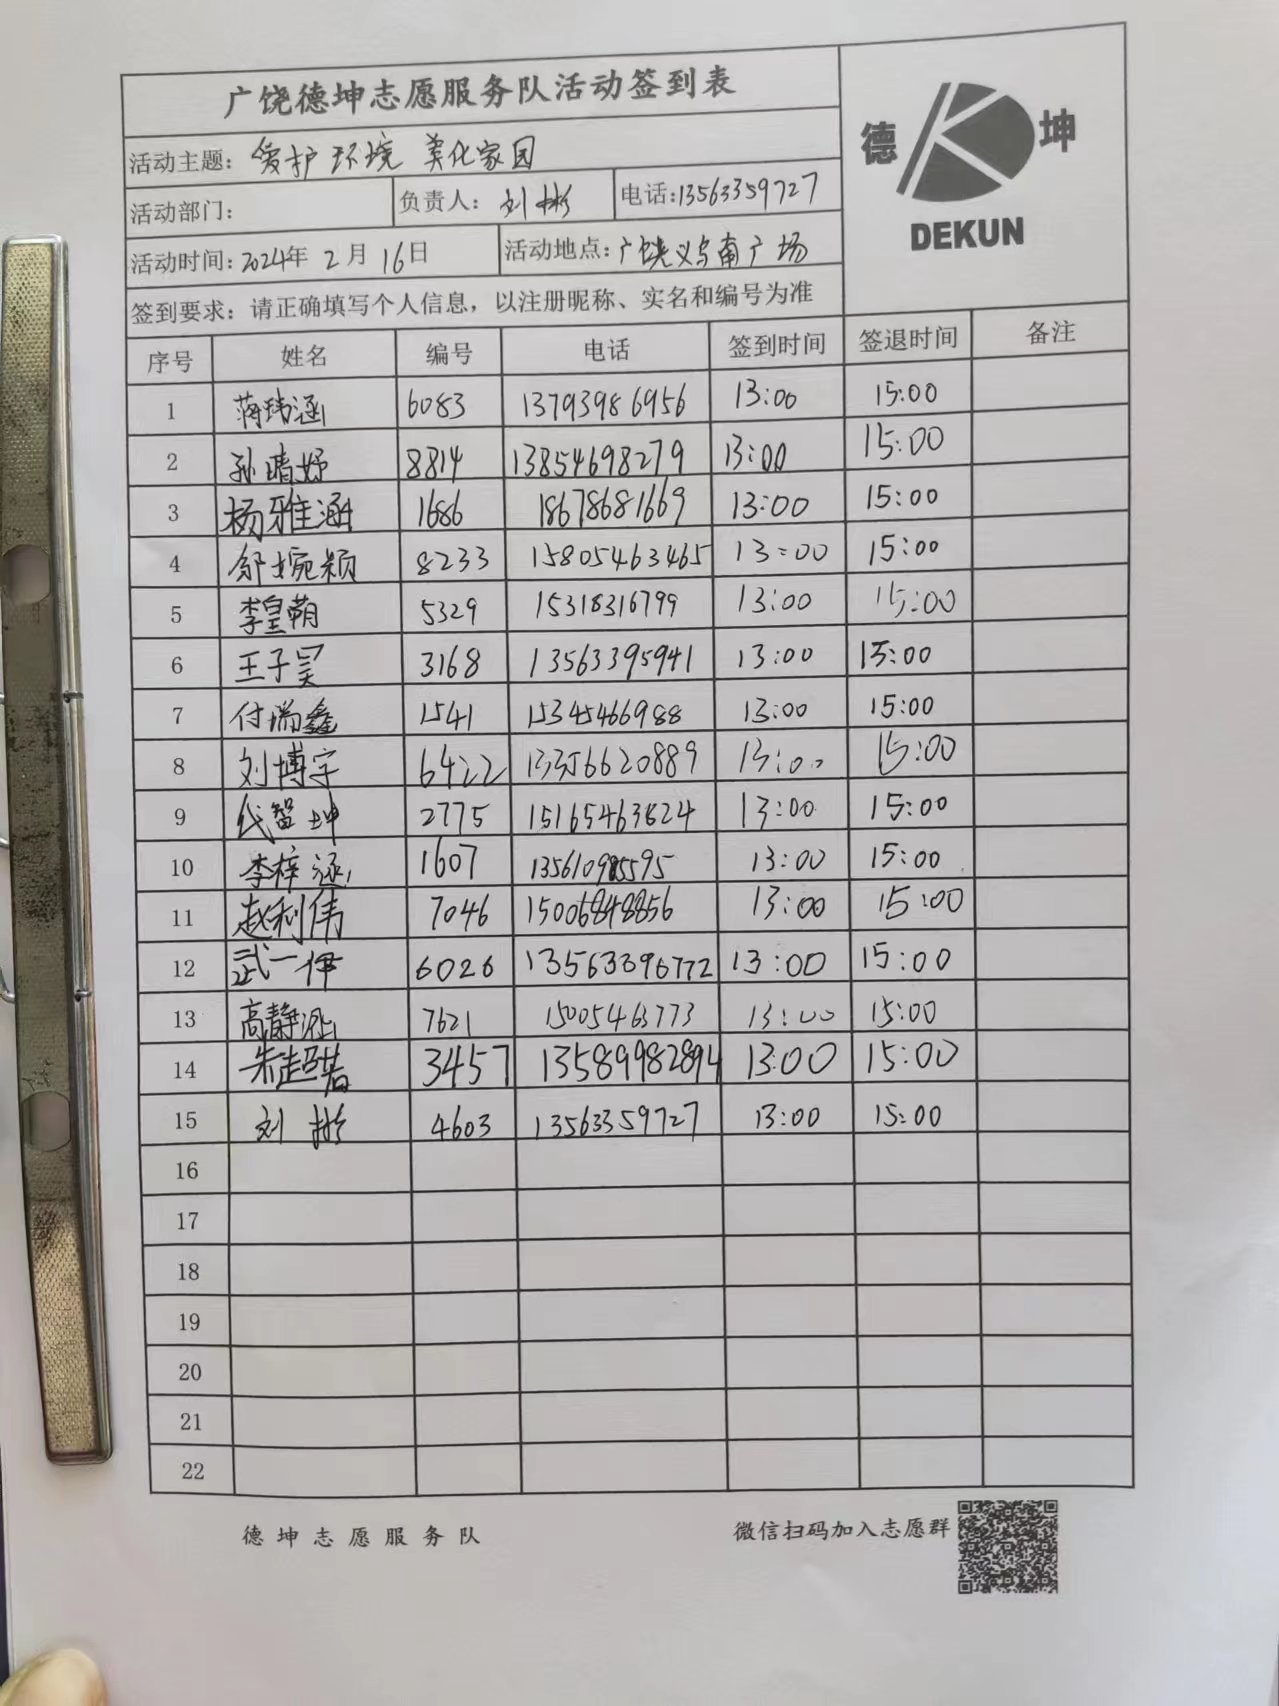 广饶德坤志愿服务队活动签到表
德 坤
DEKUN
活动主题：爱护环境 美化家园
活动部门： 负责人：刘彬 电话:13563359727
活动时间:2024年 2 月 16日 活动地点:广饶义乌南广场
签到要求：请正确填写个人信息，以注册昵称、实名和编号为准
序号 姓名 编号 电话 签到时间 签退时间 备注
1 蒋玮涵 6083 13793986956 13:00 15:00
2 孙晴妤 8814 13854698279 13:00 15:00
3 杨雅涵 1686 18678681669 13:00 15:00
4 邹婉颖 8233 15805463465 13:00 15:00
5 李皇萌 5329 15318316799 13:00 15:00
6 王子昊 3168 13563395941 13:00 15:00
7 付瑞鑫 1541 15345466988 13:00 15:00
8 刘博宇 6422 13356620889 13:00 15:00
9 代智坤 2775 15165463624 13:00 15:00
10 李梓涵 1607 13:00 15:00
11 赵利伟 7046 15006848856 13:00 15:00
12 武一伊 6026 13563396772 13:00 15:00
13 高静 7621 15005463773 13:00 15:00
14 朱 3457 13589982894 13:00 15:00
15 刘彬 4603 13563359727 13:00 15:00
16
17
18
19
20
21
22
德坤志愿服务队 微信扫码加入志愿群